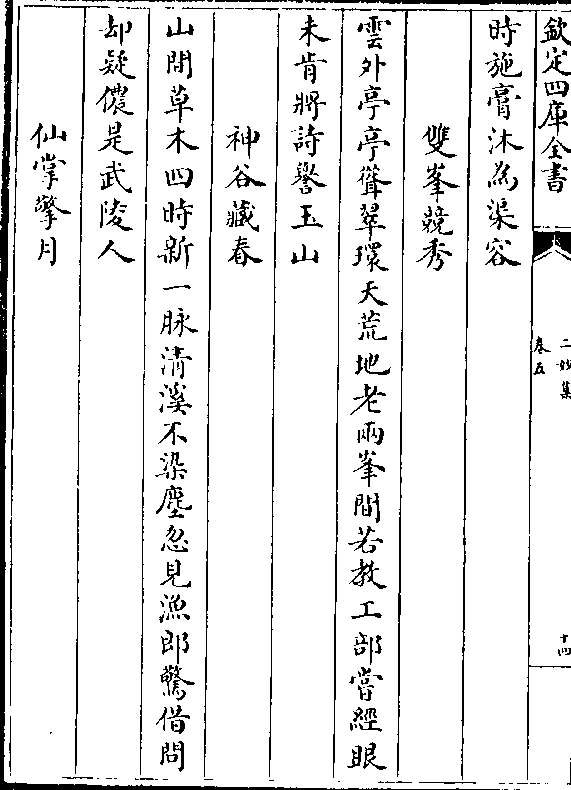 欽定四庫全書
二妙集
卷五
十四
時施膏沐為渠容
雙峯競秀
雲外亭亭聳翠環天荒地老兩峯間若教工部嘗經眼
未肯將詩譽玉山
神谷藏春
山間草木四時新一脉清溪不染塵忽見漁郎驚借問
却疑儂是武陵人
仙掌擎月